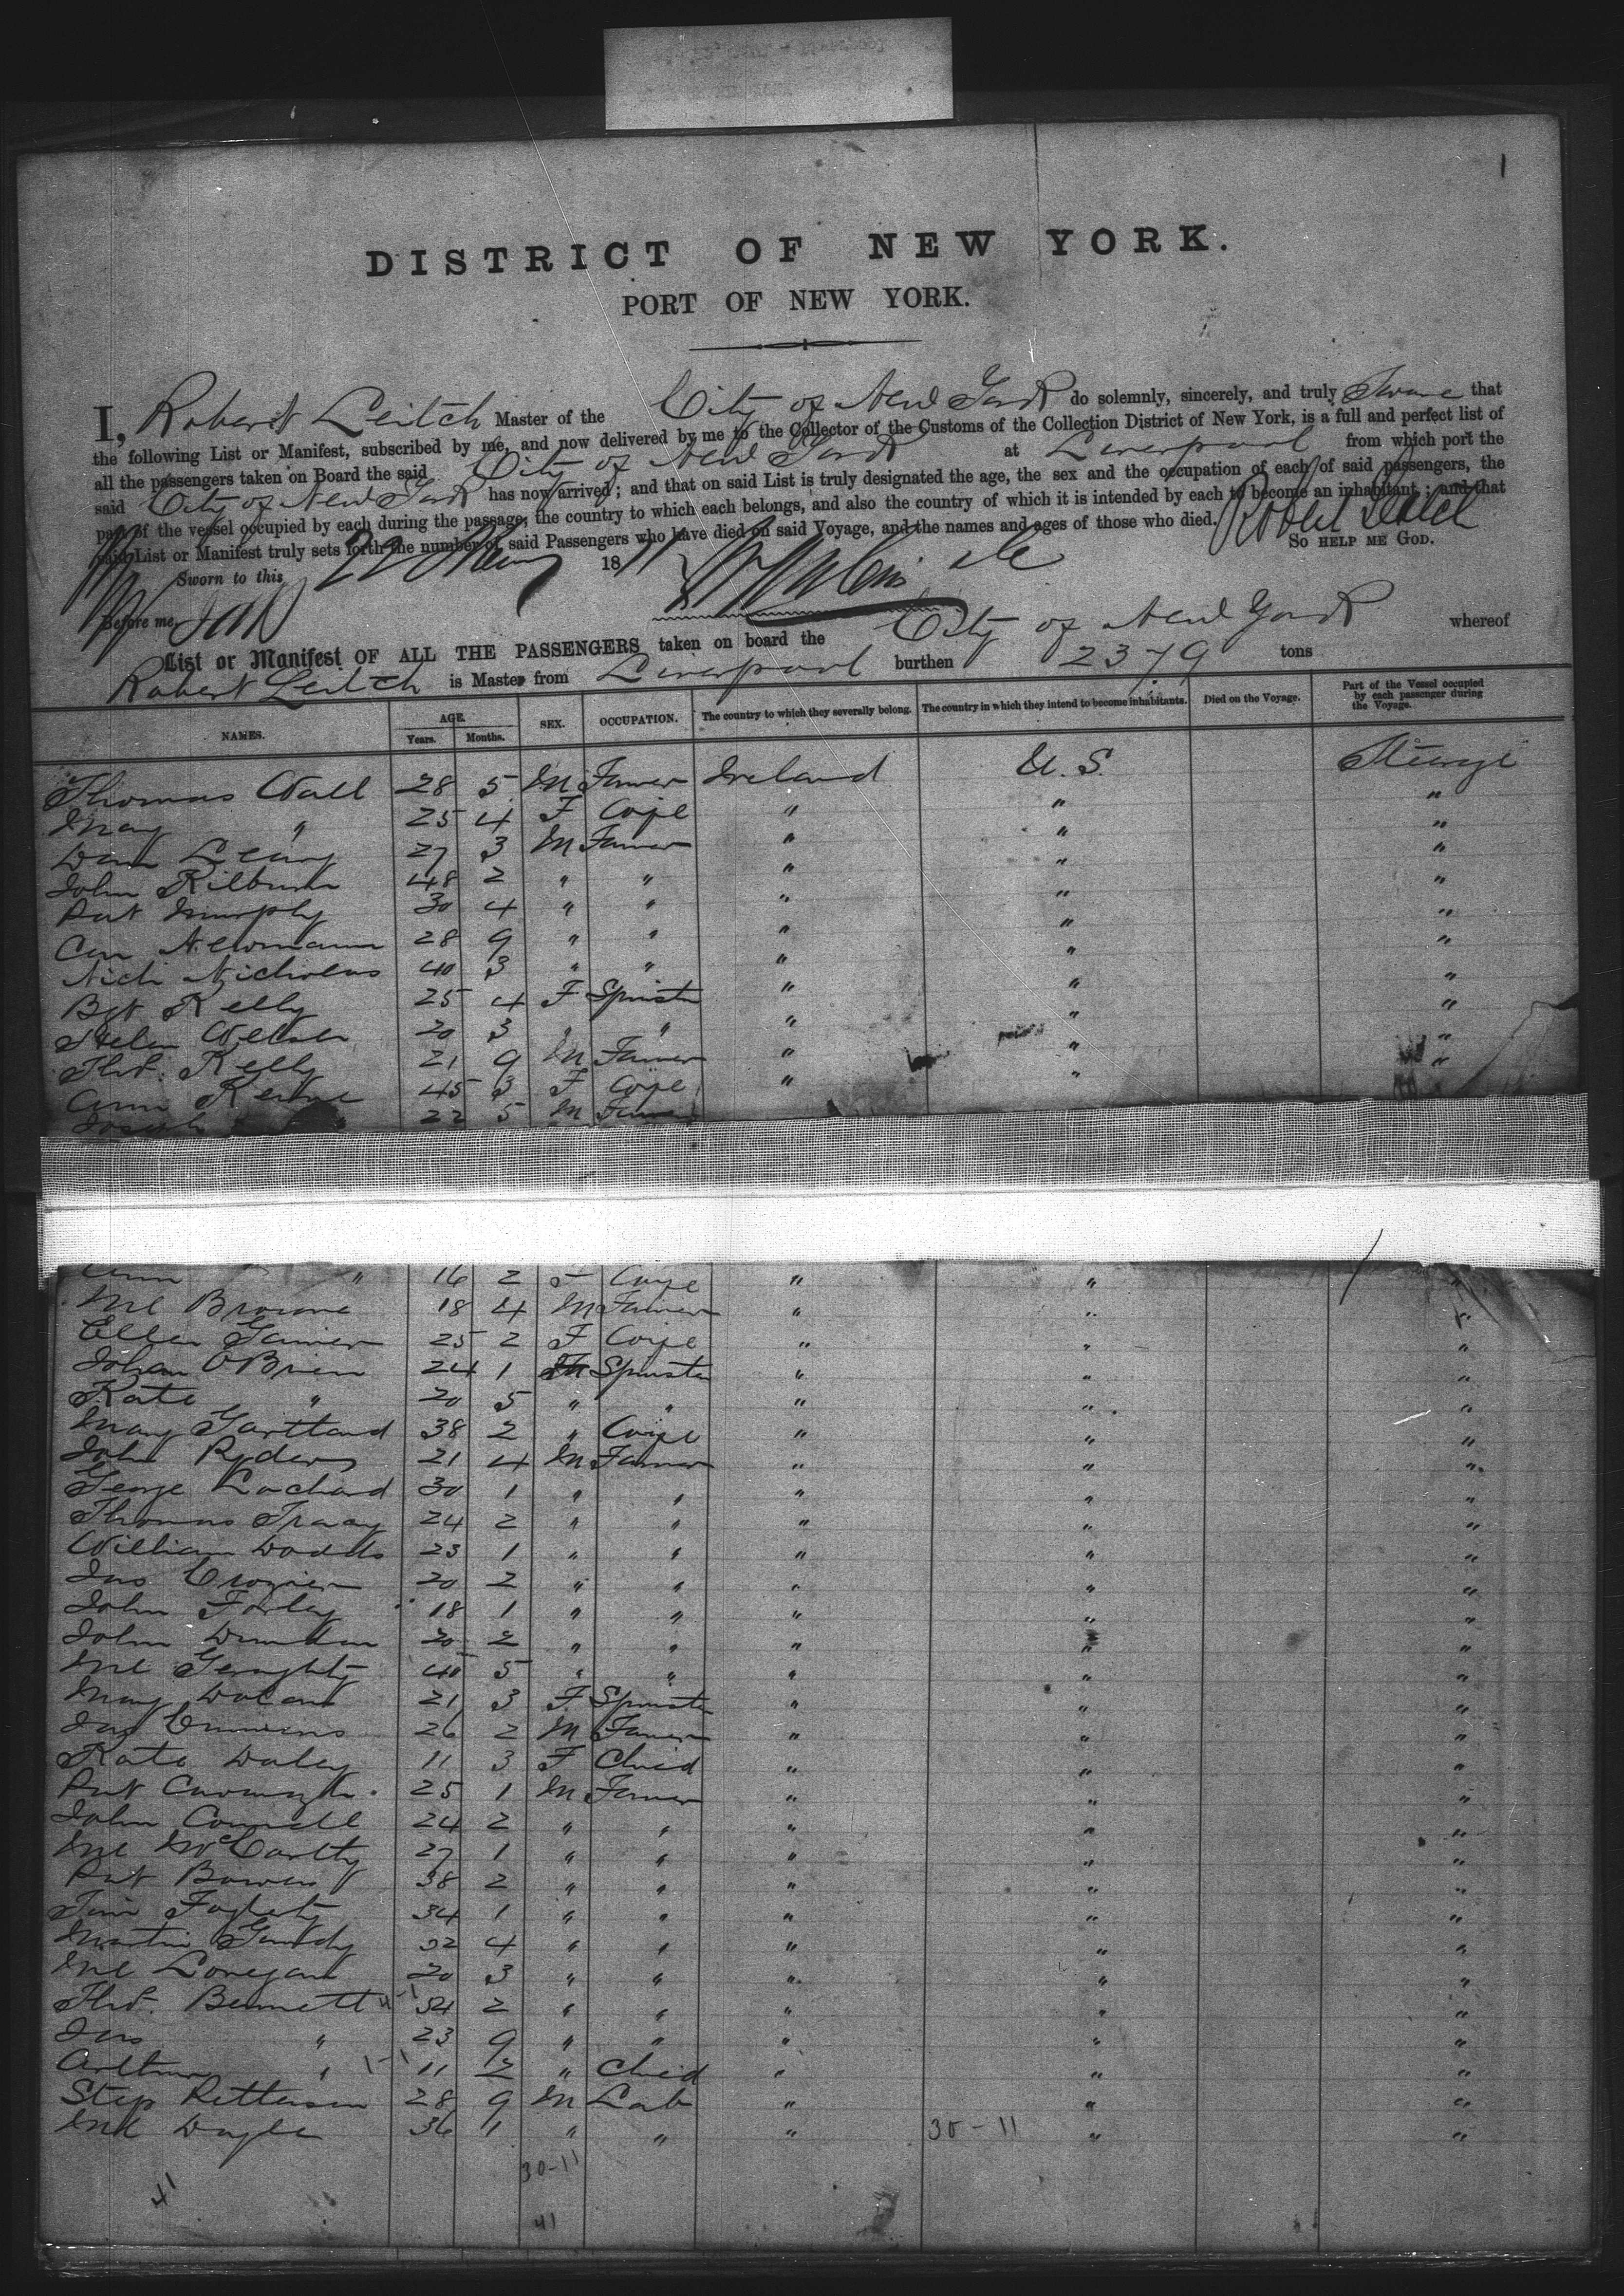 1
DISTRICT OF NEW YORK.
PORT OF NEW YORK.
I, Robert Leitch Master of the City of New York do solemnly, sincerely, and truly Swear that
the following List or Manifest, subscribed by me, and now delivered by me to the Collector of the Customs of the Collection District of New York, is a full and perfect list of
all the passengers taken on Board the said City of New York at Liverpool from which port the
said City of New York has now arrived; and that on said List is truly designated the age, the sex and the occupation of each of said passengers, the
part of the vessel occupied by each during the passage, the country to which each belongs, and also the country of which it is intended by each to become an inhabitant; and that
said List or Manifest truly sets forth the number of said Passengers who have died on said Voyage, and the names and ages of those who died. Robert Leitch
SO HELP ME GOD.
Sworn to this 22 May 1871
Before me
List or Manifest OF ALL THE PASSENGERS taken on board the City of New York whereof
Robert Leitch is Master from Liverpool burthen 2379 tons
NAMES. AGE. Years. Months. SEX. OCCUPATION. The country to which they severally belong. The country in which they intend to become inhabitants. Died on the Voyage. Part of the Vessel occupied by each passenger during the Voyage.
Thomas Wall 28 5 M Farmer Ireland U. S. Steerage
Mary " 25 4 F " " "
Danl Leary 27 3 M Farmer " " "
John Kilburn 48 2 " " " " "
Pat Murphy 30 4 " " " " "
Newmann 28 9 " " " " "
Nich Nicholas 40 3 " " " " "
Bgt Kelly 25 4 F Spinster " " "
Helen 20 3 " " " " "
Thos. Kelly 21 9 M Farmer " " "
Ann 45 3 F " " "
Joseph 22 5 M Farmer
Ann " 16 2 " " "
Ml Browne 18 4 M Farmer " " "
Ellen 25 2 F " " "
Johan O'Brien 24 1 Spinster " " "
Kate " 20 5 " " " " "
Mary Gartland 38 2 " " " "
John Ryders 21 4 M Farmer " " "
George Lochard 30 1 " " " " "
Thomas Tracy 24 2 " " " " "
William Dodds 23 1 " " " " "
Jas Crozier 20 2 " " " " "
John Farley 18 1 " " " " "
John 20 2 " " " " "
Ml Geraghty 40 5 " " " " "
Mary Dolan 21 3 F Spinster " " "
Jas Cummins 26 2 M Farmer " " "
Kate Daley 11 3 F Child " " "
Pat Cavanagh 25 1 M Farmer " " "
John Connell 24 2 " " " " "
Ml McCarthy 27 1 " " " " "
Pat Bowers 38 2 " " " " "
Tim Fogherty 34 1 " " " " "
Martin 32 4 " " " " "
Ml Lonegan 20 3 " " " " "
Thos. Bennett 34 2 " " " " "
Jas " 23 9 " " " " "
Arthur " 11 2 " Child " " "
Step 28 9 M Lab " " "
Ml Doyle 36 1 " " " 30-11 " "
30-11
41
41